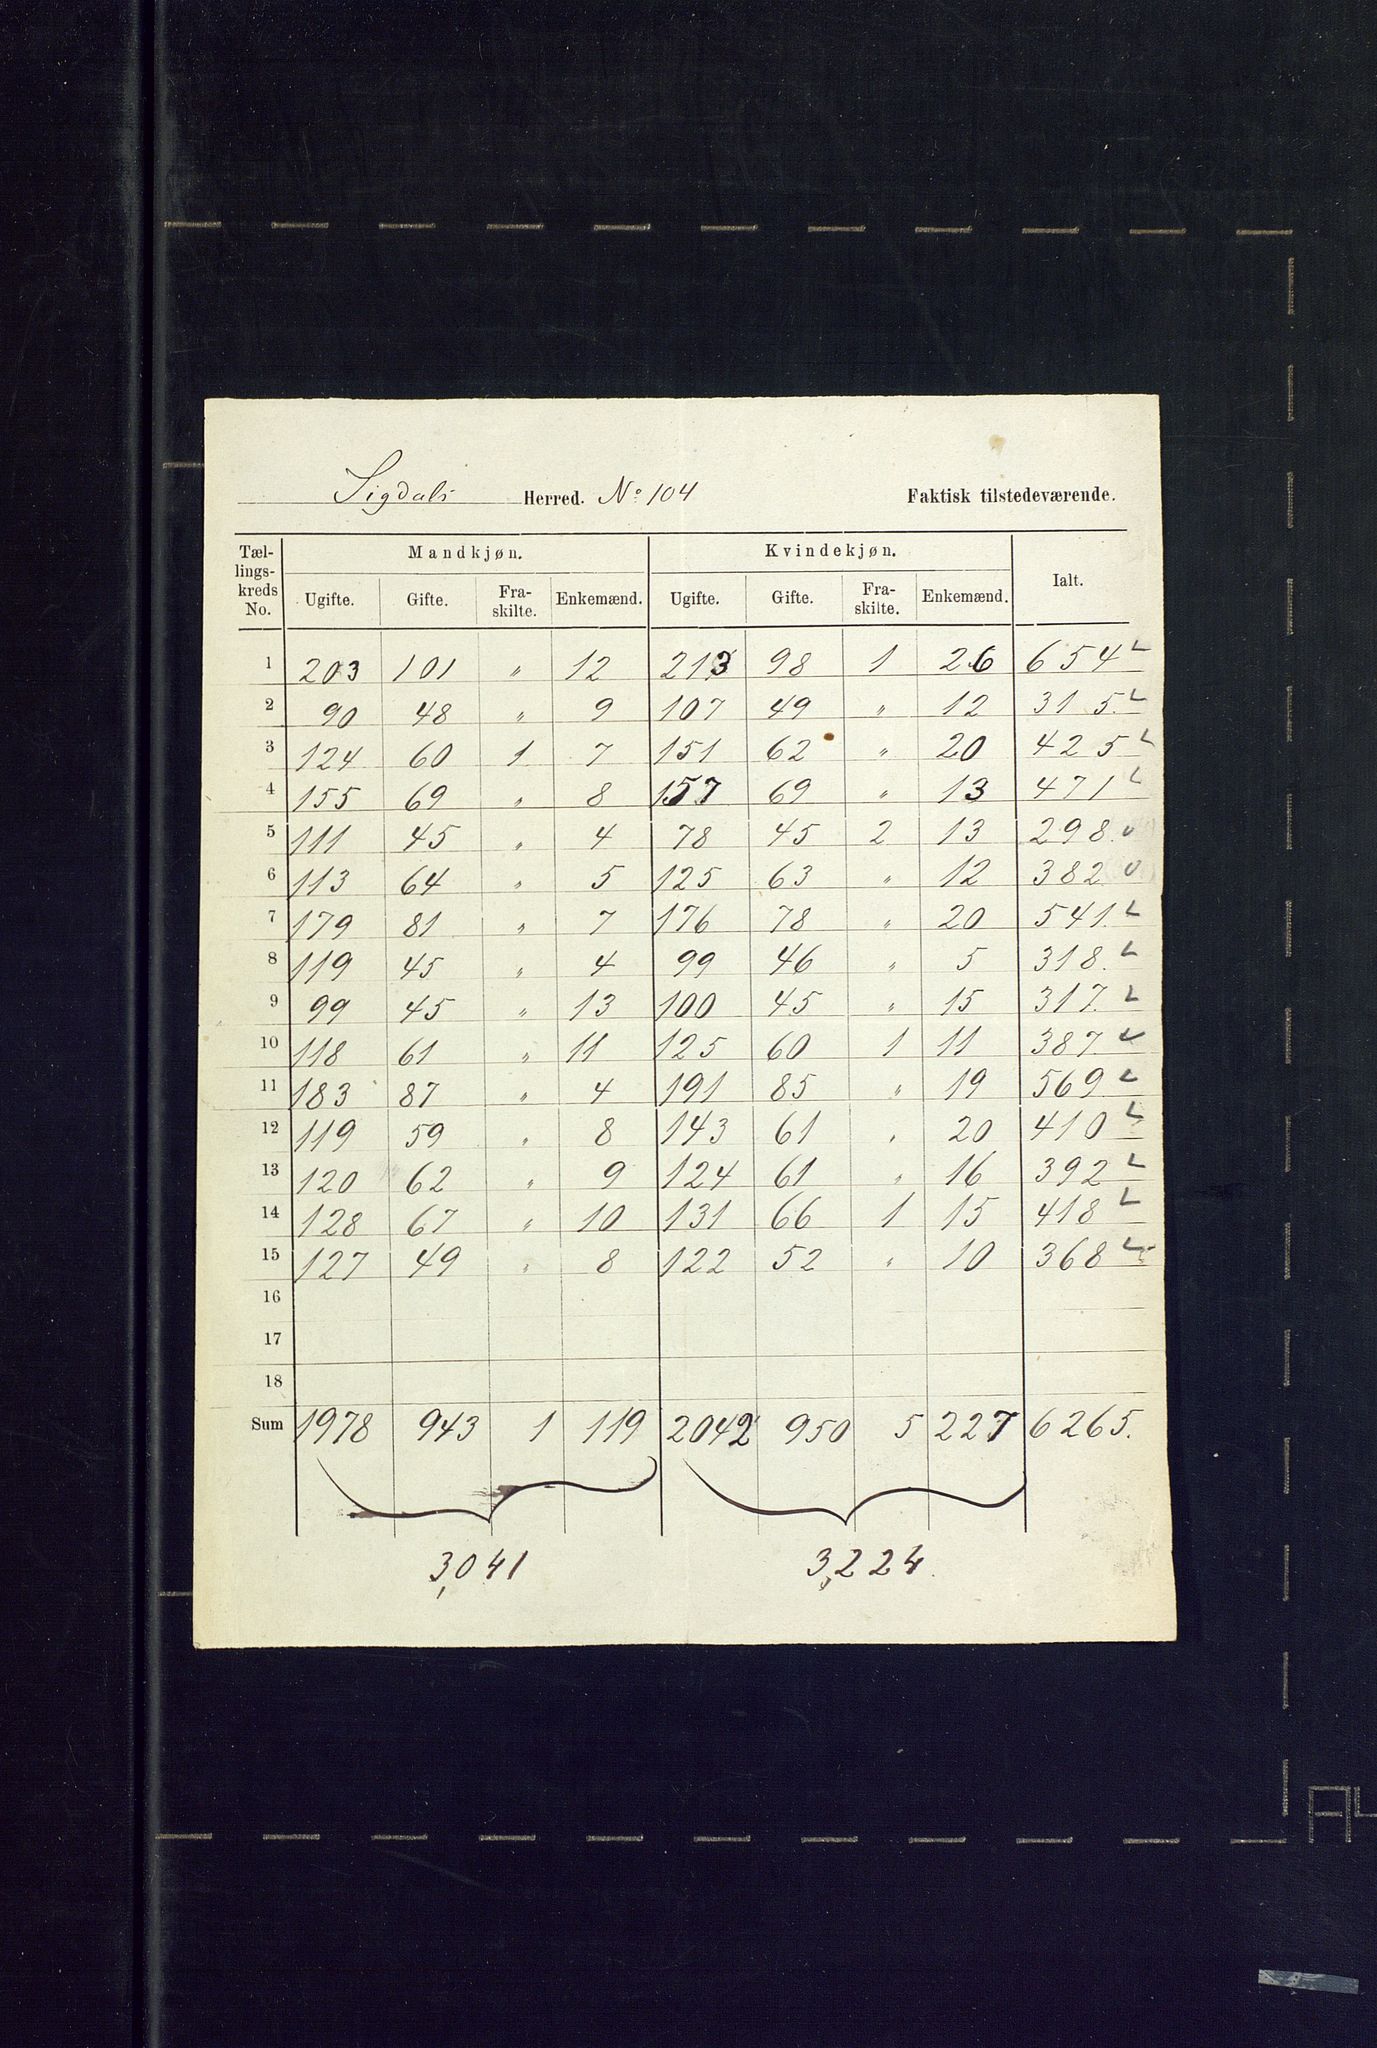 Sigdals Herred. No 104 Faktisk tilstedeværende.
Tællingskreds No. Mandkjøn. Kvindekjøn. Ialt.
Ugifte. Gifte. Fraskilte. Enkemænd. Ugifte. Gifte. Fraskilte. Enkemænd.
1 203 101 " 12 213 98 1 26 654
2 90 48 " 9 107 49 " 12 315.
3 124 60 1 7 151 62 " 20 425
4 155 69 " 8 157 69 " 13 471
5 111 45 " 4 78 45 2 13 298.
6 113 64 " 5 125 63 " 12 382
7 179 81 " 7 176 78 " 20 541.
8 119 45 " 4 99 46 " 5 318.
9 99 45 " 13 100 45 " 15 317.
10 118 61 " 11 125 60 1 11 387.
11 183 87 " 4 191 85 " 19 569
12 119 59 " 8 143 61 " 20 410
13 120 62 " 9 124 61 " 16 392
14 128 67 " 10 131 66 1 15 418
15 127 49 " 8 122 52 " 10 368
16
17
18
Sum 1978 943 1 119 2042 950 5 227 6265.
3,041 3,224.
A4